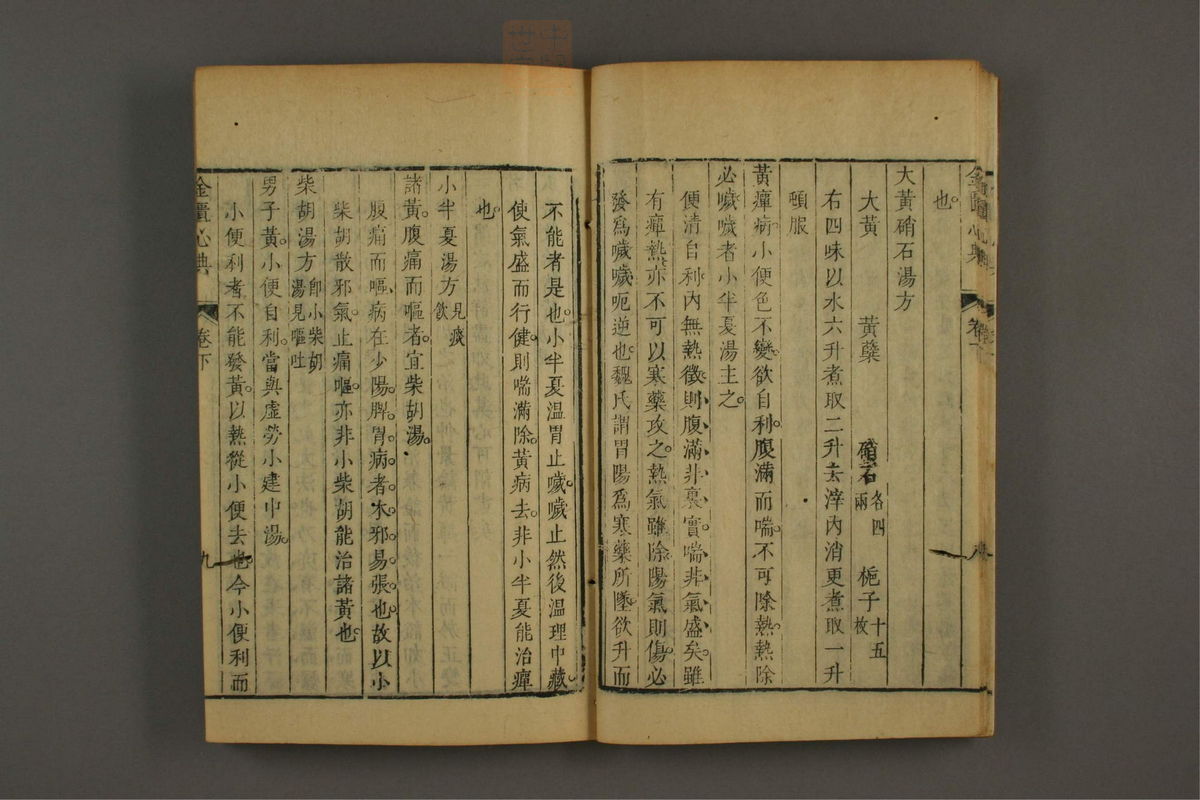 也
大黃硝石湯方
大黃 黃蘗 硝石各四兩 梔子十五枚
右四味以水六升煮取二升去滓內消更煮取一升
頓服
黃癉病小便色不變欲自利腹滿而喘不可除熱熱除
必噦噦者小半夏湯主之
便清自利內無熱徵則腹滿非裏實喘非氣盛矣雖
有癉熱亦不可以寒藥攻之熱氣雖除陽氣則傷必
發爲噦噦呃逆也魏氏謂胃陽爲寒藥所墜欲升而
不能者是也小半夏温胃止噦噦止然後温理中藏
使氣盛而行健則喘滿除黃病去非小半夏能治癉
也
小半夏湯方見痰飲
諸黃腹痛而嘔者宜柴胡湯
腹痛而嘔病在少陽脾胃病者木邪易張也故以小
柴胡散邪氣止痛嘔亦非小柴胡能治諸黃也
柴胡湯方卽小柴胡湯見嘔吐
男子黃小便自利當與虛勞小建中湯
小便利者不能發黃以熱從小便去也今小便利而
金匱心典 卷下 九